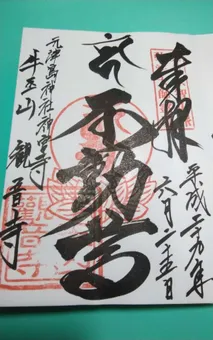 奉拝
平成二十九年
六月二十五日
不動尊
元津島神社神宮寺
牛玉山 観音寺